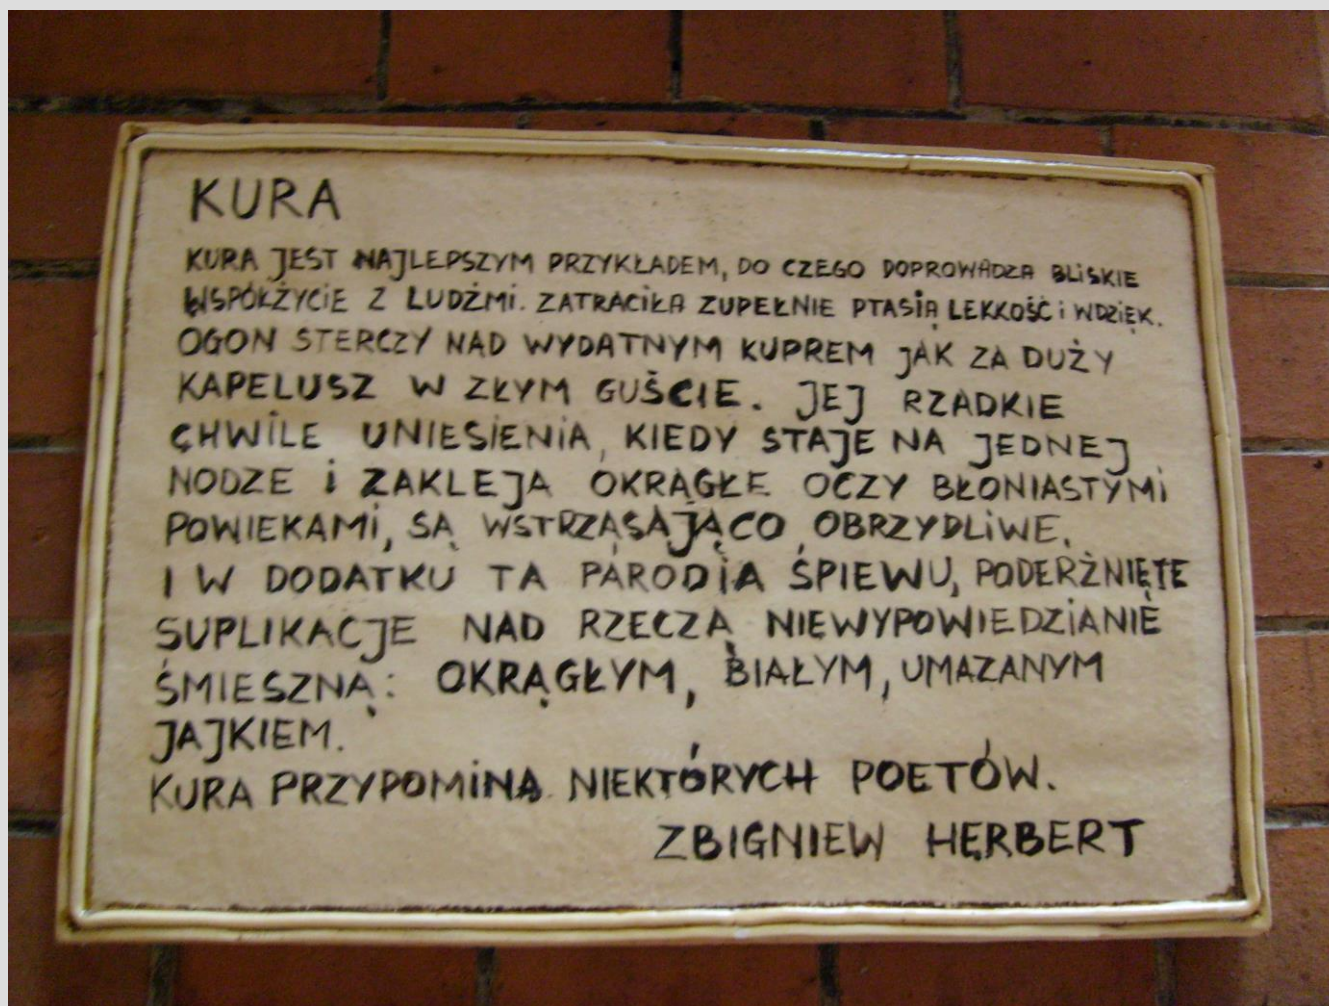 KURA
KURA JEST NAJLEPSZYM PRZYKŁADEM, DO CZEGO DOPROWADZA BLISKIE
WSPÓŁŻYCIE Z LUDŹMI. ZATRACIŁA ZUPEŁNIE PTASIĄ LEKKOŚĆ i WDZIĘK.
OGON STERCZY NAD WYDATNYM KUPREM JAK ZA DUŻY
KAPELUSZ W ZŁYM GUŚCIE. JEJ RZADKIE
CHWILE UNIESIENIA, KIEDY STAJE NA JEDNEJ
NODZE i ZAKLEJA OKRĄGŁE OCZY BŁONIASTYMI
POWIEKAMI, SĄ WSTRZĄSAJĄCO OBRZYDLIWE.
I W DODATKU TA PARODIA ŚPIEWU, PODERŻNIĘTE
SUPLIKACJE NAD RZECZĄ NIEWYPOWIEDZIANIE
ŚMIESZNĄ: OKRĄGŁYM, BIAŁYM, UMAZANYM
JAJKIEM.
KURA PRZYPOMINA NIEKTÓRYCH POETÓW.
ZBIGNIEW HERBERT